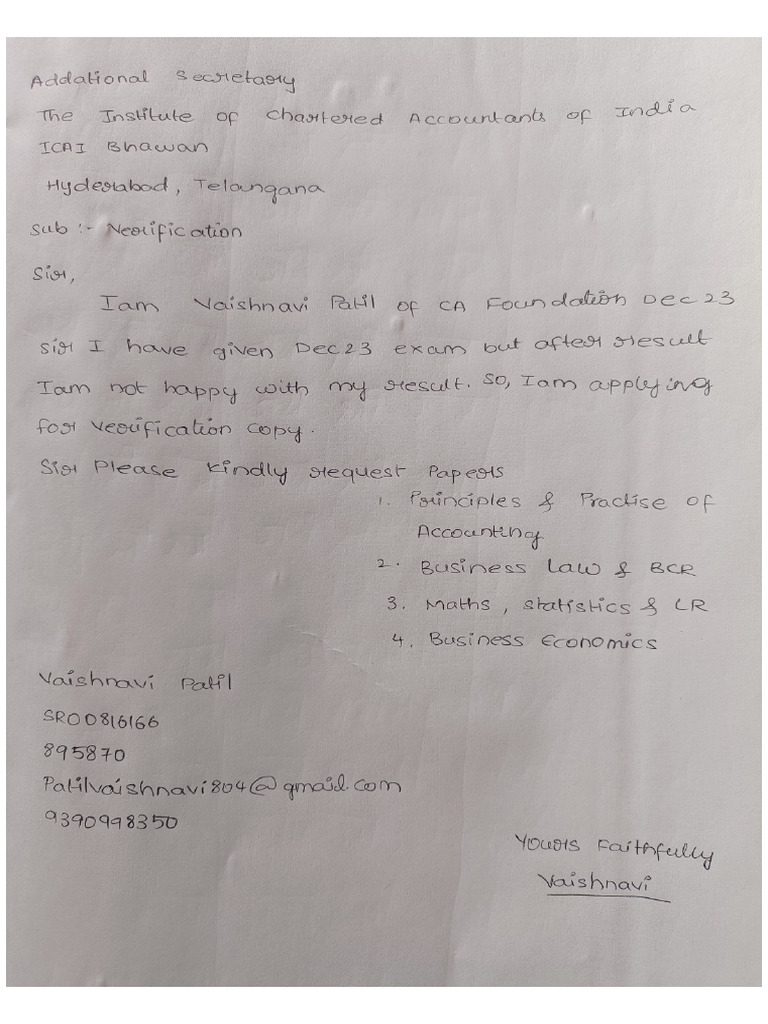 Addational Secretary
The Institute of Chartered Accountants of India
ICAI Bhawan
Hyderabad, Telangana
Sub :- Verification
Sir,
Iam Vaishnavi Patil of CA Foundation Dec 23
sir I have given Dec 23 exam but after result
Iam not happy with my result. So, Iam applying
for verification copy.
Sir Please kindly request Papers
1. Principles & Practise of
Accounting
2. Business Law & BCR
3. Maths, Statistics & LR
4. Business Economics
Vaishnavi Patil
SRO0816166
895870
Patilvaishnavi804@gmaid.com
9390998350
Yours Faithfully
Vaishnavi